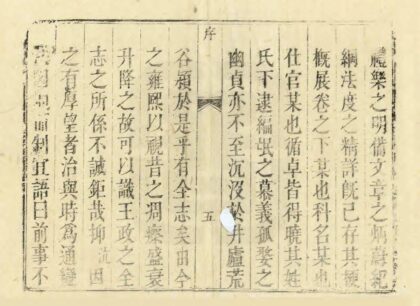 禮樂之明備文章之炳蔚紀
綱法度之精詳旣已存其梗
概展卷之下某也科名某也
仕官某也循卓皆得曉其姓
氏下逮編氓之慕義孤嫠之
幽貞亦不至沉沒於井廬荒
序
五
谷穎於是乎有全志矣由今
之雍熙以視昔之凋瘵盛衰
升降之故可以識王政之全
志之所係不誠鉅哉抑沉因
之有厚望者治與時爲通變
而制宜語曰前事不